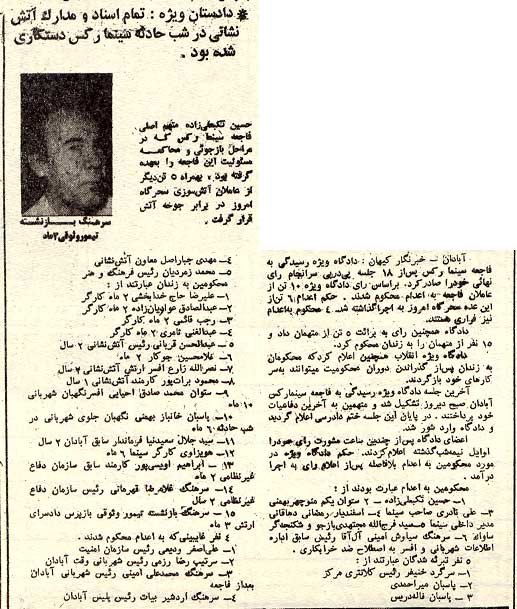 * دادستان ویژه : تمام اسناد و مدارک آتش
نشانی در شب حادثه سینما رکس دستکاری
شده بود .
حسین تکبعلی‌زاده متهم اصلی
فاجعه سینما رکس که در
مراحل بازجوئی و محاکمه
مسئولیت این فاجعه را بعهده
گرفته بود ، بهمراه ۵ تن‌دیگر
از عاملان آتش‌سوزی سحرگاه
امروز در برابر جوخه آتش
قرار گرفت .
سرهنگ بازنشسته
تیمور‌وثوقی ۳ماه
آبادان – خبرنگار کیهان : دادگاه ویژه رسیدگی به
فاجعه سینما رکس پس‌از ۱۸ جلسه پی‌درپی سرانجام رای
نهائی خودرا صادرکرد. براساس رای دادگاه ویژه ۱۰ تن از
عاملان فاجعه به اعدام محکوم شدند . حکم اعدام ۶ تن‌از
این عده سحرگاه امروز به اجراگذاشته شد. ۴ محکوم به‌اعدام
نیز فراری هستند.
دادگاه همچنین رای به برائت ۵ تن از متهمان داد و
۱۵ نفر از متهمان را به زندان محکوم کرد.
دادگاه ویژه انقلاب همچنین اعلام کردکه محکومان
به زندان پس‌از گذراندن دوران محکومیت میتوانند به‌سر
کارهای خود بازگردند.
آخرین جلسه دادگاه ویژه رسیدگی به فاجعه سینمارکس
آبادان صبح دیروز تشکیل شد و متهمین به آخرین دفاعیات
خود پرداختند . در پایان این جلسه ختم دادرسی اعلام گردید
و دادگاه وارد شور شد.
اعضای دادگاه پس‌از چندین ساعت مشورت رای خودرا
اوایل نیمه‌شب‌گذشته اعلام‌کردند. حکم دادگاه ویژه در
مورد محکومین به اعدام بلافاصله پس‌از اعلام رای به اجرا
درآمد .
محکومین به اعدام عبارت بودند از :
۱– حسین تکبعلی‌زاده – ۲ ستوان یکم منوچهربهمنی
۳– علی نادری صاحب سینما ۴– اسفندیار رمضانی دهاقانی
مدیر داخلی سینما ۵– سید فرج‌الله مجتهدی‌بازجو و شکنجه‌گر
ساواک ۶– سرهنگ سیاوش امینی آل‌آقا رئیس سابق اداره
اطلاعات شهربانی و افسر به اصطلاح ضد خرابکاری .
۵ نفر تبرئه شدگان عبارتند از :
۱– سرگرد حنیفر رئیس کلانتری مرکز
۲– پاسبان میراحمدی
۳ – پاسبان فاله‌دریس
۴– مهدی جباراصل معاون آتش‌نشانی
۵– محمد زمردیان رئیس فرهنگ و هنر
محکومین به زندان عبارتند از :
۱– علیرضا حاج خدابخشی ۲ ماه کارگر
۲– عبدالصادق عوادیان‌زاده ۲ ماه کارگر
۳– رجب فانشی ۲ ماه کارگر
۴– عبدالغنی نامری ۲ ماه کارگر
۵– عبدالحسن قربانی رئیس آتش‌نشانی ۲ سال
۶– غلامحسین جوکار ۲ ماه
۷– نصرالله زارع افسر ارتش آتش‌نشانی ۲ سال
۸– محمود برات‌پور کارمند آتش‌نشانی ۱ سال
۹– ستوان محمد صادق احیایی افسرنگهبان شهربانی
۱۰ ماه
۱۰– پاسبان خانباز بهمنی نگهبان جلوی شهربانی در
شب حادثه ۶ ماه
۱۱– سید جلال سعیدنیا فرماندار سابق آبادان ۲ سال
۱۲– هویزاوی کارگر سینما ۶ ماه
۱۳ – ابراهیم اویسی‌پور کارمند سابق سازمان دفاع
غیرنظامی ۲ ماه
۱۴– سرهنگ غلامرضا قهرمانی رئیس سازمان دفاع
غیرنظامی ۲ سال
۱۵– سرهنگ بازنشسته تیمور وثوقی بازپرس دادسرای
ارتش ۳ ماه
۴ نفر غایبینی که به اعدام محکوم شدند .
۱– علی‌اصغر ودیعی رئیس سازمان امنیت
۲– سرتیپ رضا رزمی رئیس شهربانی وقت آبادان
۳– سرهنگ محمدعلی امینی رئیس شهربانی آبادان
بعداز فاجعه
۴– سرهنگ اردشیر بیات رئیس پلیس آبادان